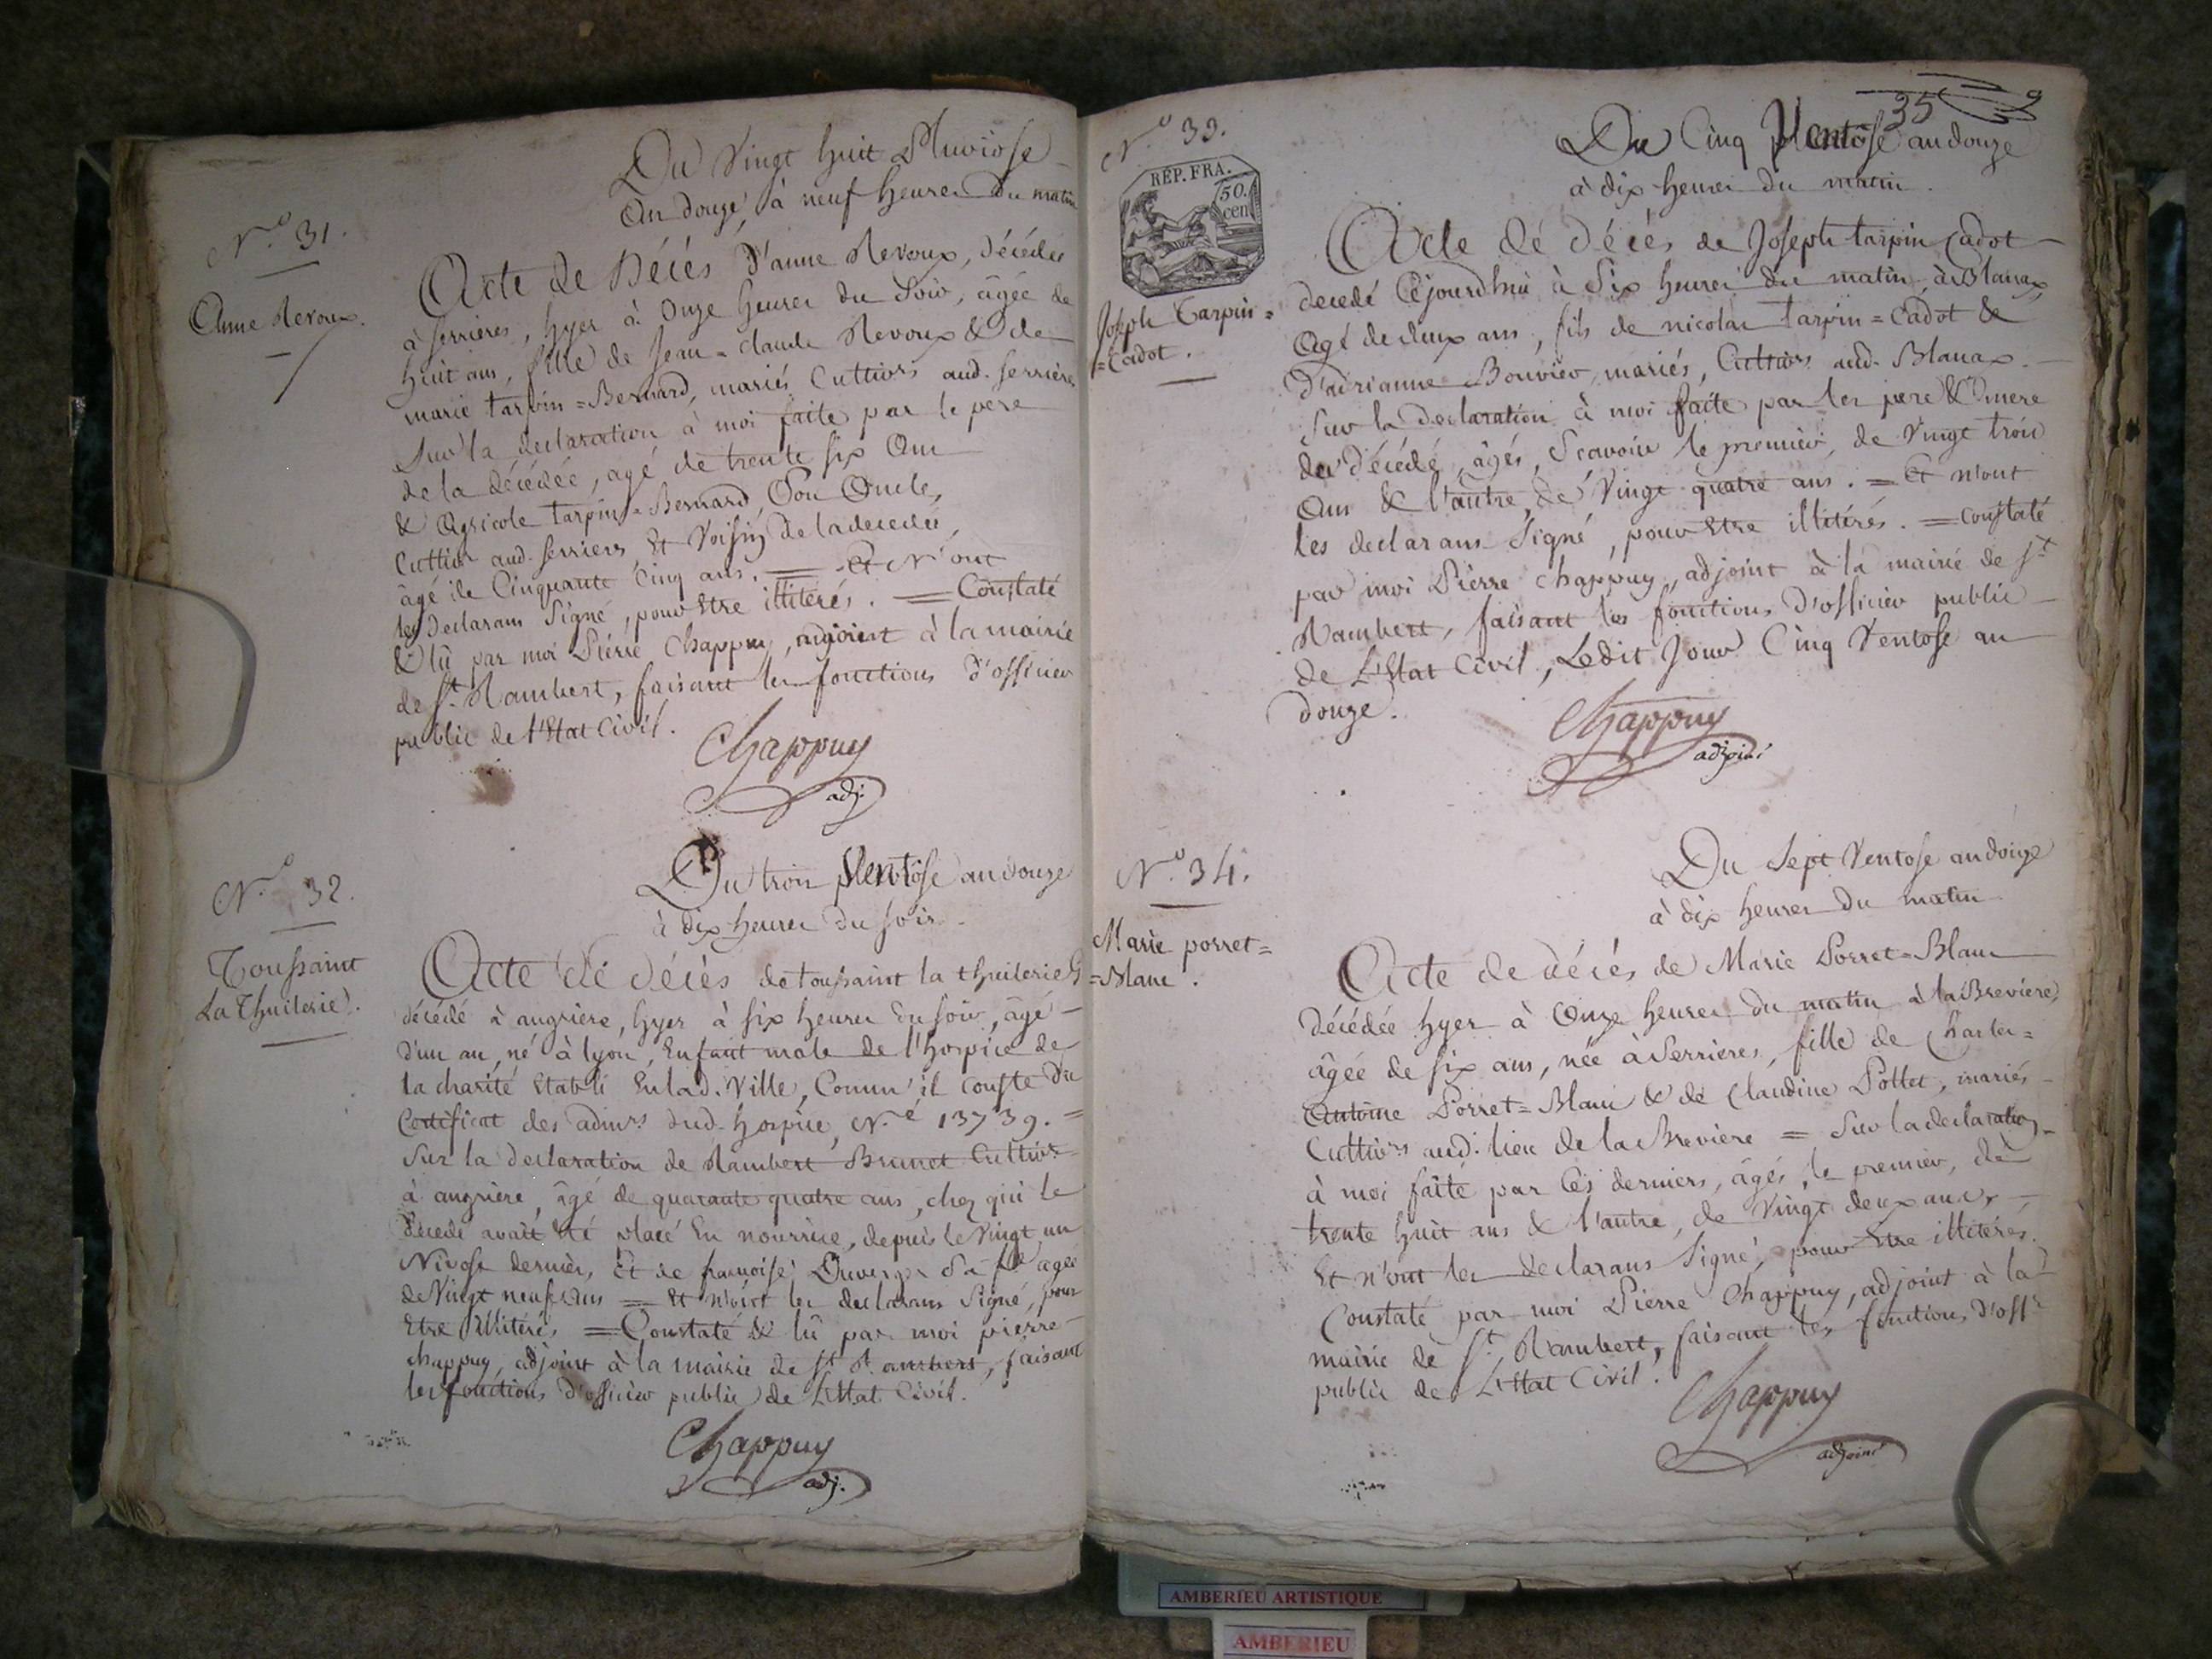 Du Vingt huit Pluviôse
an douze, à neuf heures du matin
N.º 31.
Anne Revoux.
Acte de Décès d'anne Revoux, décédée
à serrieres, hyer à Onze heures du Soir, âgée de
huit ans, fille de Jean=claude Revoux & de
marie tarpin=Bernard, mariés Cultivrs aud. serrieres
Sur la declaration à moi faite par le pere
de la décédée, agé de trente six Ans
& Agricole tarpin=Bernard, Son Oncle,
Cultivr aud. serrieres, Et Voisin de la decedée,
âgé de Cinquante Cinq ans. = Et N'ont
les declarans Signé, pour Etre illiterés. = Constaté
& lû par moi Pierre Chappuy, adjoint à la mairie
de St. Rambert, faisant les fonctions d'officier
public de l'Etat Civil.
Chappuy
adj.
Du trois Ventôse an douze
à dix heures du soir.
N.º 32.
Toussaint
La Thuilerie.
Acte de décès de toussaint la thuilerie
décédé à angriere, hyer à six heures du soir, âgé
d'un an, né à lyon, Enfant male de l'hospice de
la charité Etabli En lad. Ville, Comm'il conste du
Certificat des admrs. dud. hospice, N.º 13739. =
Sur la declaration de Rambert Brunet Cultivr.
à angriere, âgé de quarante quatre ans, chez qui le
decedé avait été placé En nourrice, depuis le Vingt un
Nivose dernier, Et de francoise sa fe agée
de Vingt neuf ans = Et n'ont les declarans Signé, pour
Etre illiterés = Constaté & lû par moi pierre
chappuy, adjoint à la mairie de St. Rambert, faisant
les fonctions d'officier public de L'Etat Civil.
Chappuy
adj.
35
N.º 33.
REP. FRA.
50.
cen
Joseph Tarpin=
=Cadot.
Du Cinq Ventôse an douze
à dix heures du matin.
Acte de décès de Joseph tarpin Cadot
decedé Cejourdhui à Six heures du matin, à Blanax,
Agé de deux ans, fils de nicolas tarpin=Cadot &
d'adrianne Bouvier, mariés, Cultivrs. aud. Blanax.
Sur la declaration à moi faite par les pere & mere
du décédé, âgés, Scavoir le premier, de Vingt trois
Ans & l'autre, de Vingt quatre ans. = Et n'ont
les declarans Signé, pour Etre illitérés. = Constaté
par moi Pierre chappuy, adjoint à la mairie de St.
Rambert, faisant les fonctions d'officier public
de L'Etat Civil, Ledit Jour Cinq Ventose an
douze.
Chappuy
adjoint
N.º 34.
Marie porret=
=Blanc.
Du Sept Ventose an douze
à dix heures du matin
Acte de décès de Marie Porret=Blanc
décédée hyer à Onze heures du matin à la Breviere,
âgée de six ans, née à Serrieres, fille de Charles=
Antoine Porret=Blanc & de Claudine Pottet, mariés
Cultivrs aud. lieu de la Breviere = Sur la declaration
à moi faite par ces derniers, âgés, le premier, de
trente huit ans & l'autre, de Vingt deux ans,
Et n'ont les declarans Signé, pour Etre illitérés.
Constaté par moi Pierre Chappuy, adjoint à la
mairie de St. Rambert, faisant les fonctions d'offr
public de L'Etat Civil.
Chappuy
adjoint
AMBERIEU ARTISTIQUE
AMBERIEU